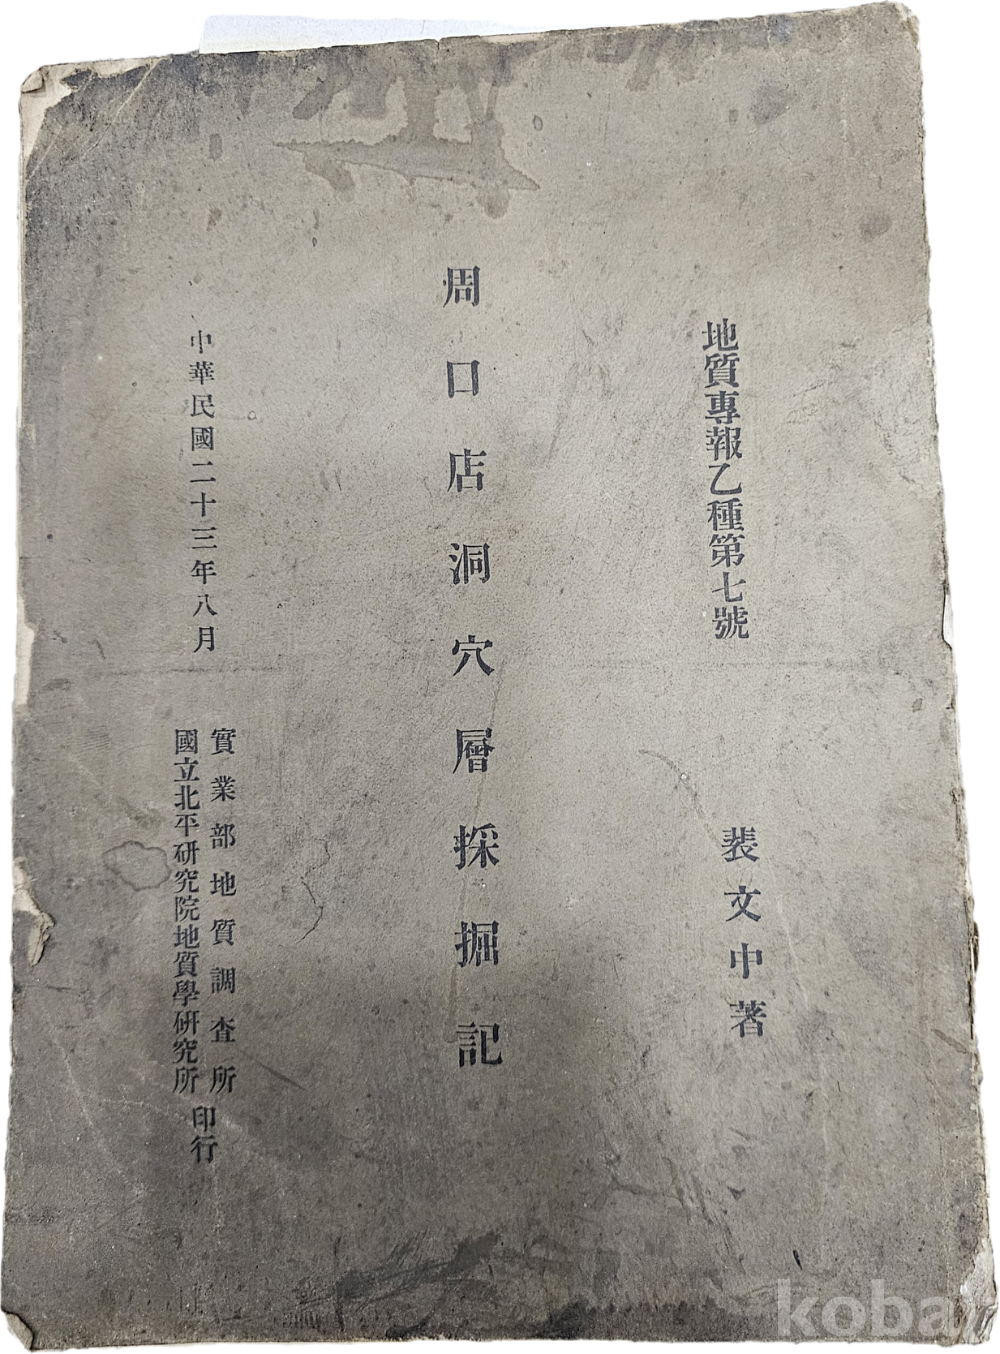 地質專報乙種第七號
裴文中著
周口店洞穴層採掘記
中華民國二十三年八月
實業部地質調查所
國立北平研究院地質學研究所
印行
koba